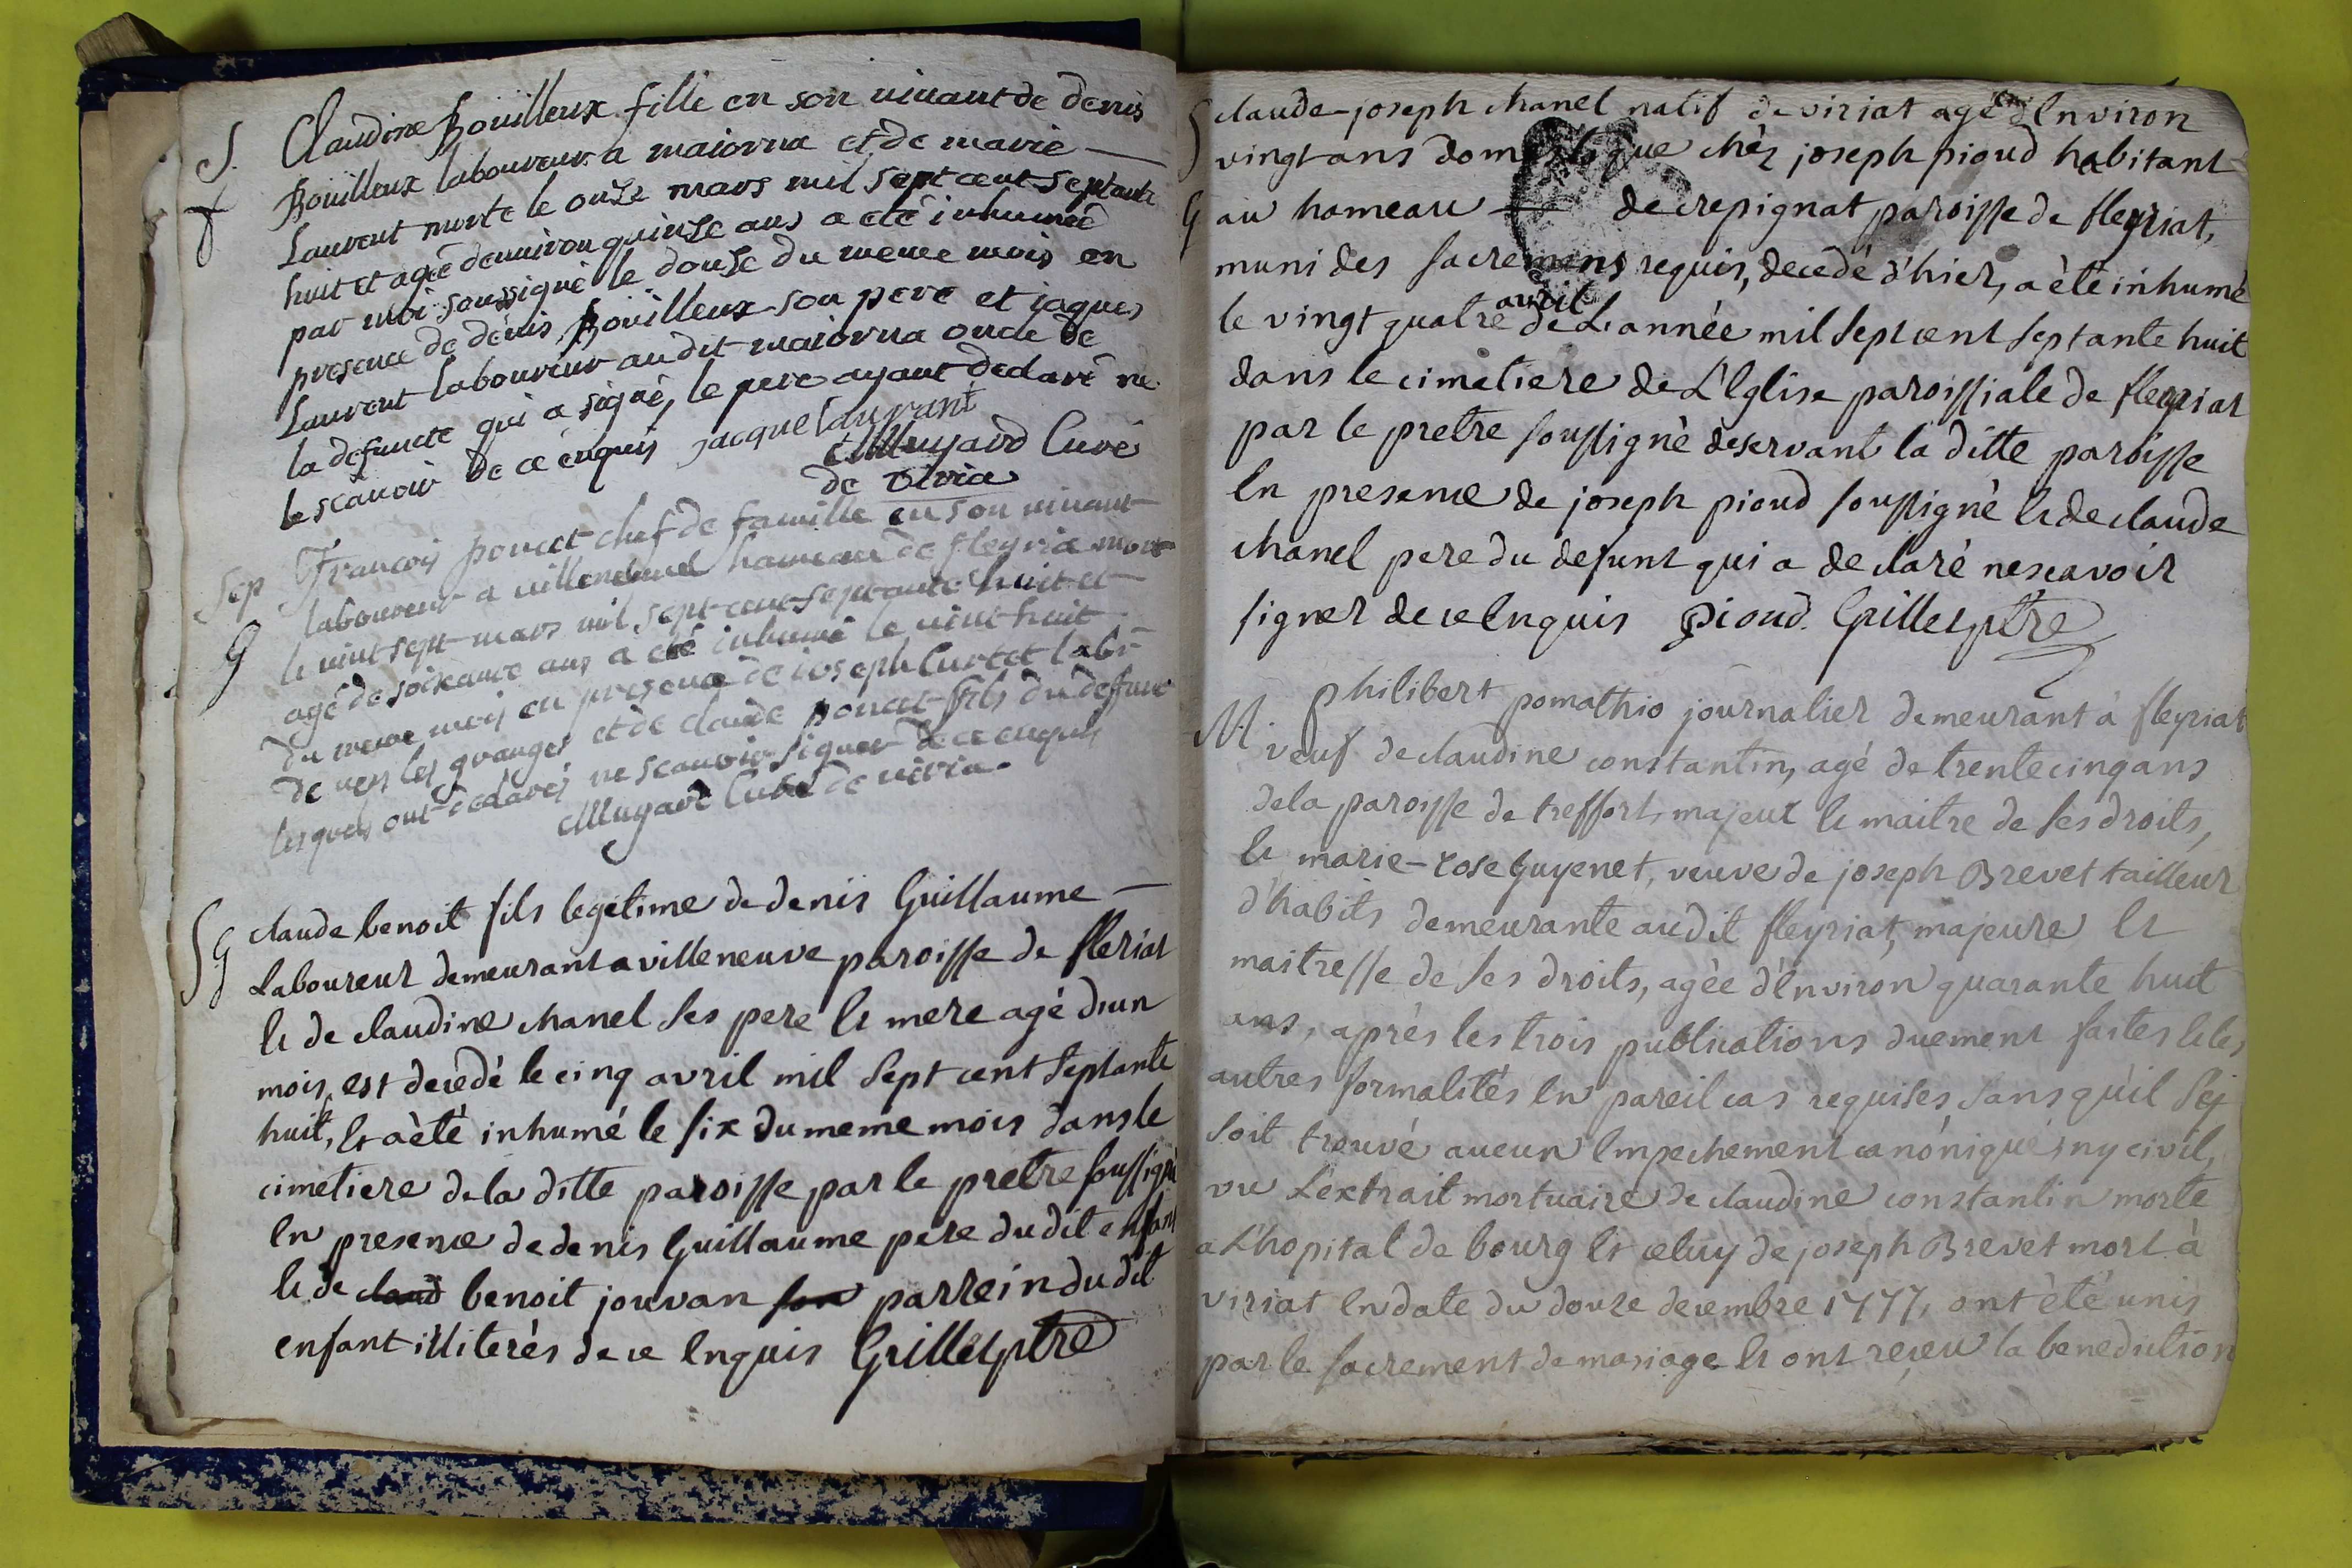 S. Claudine Bouilleux fille en son vivant de denis
f Bouilleux laboureur a maiorna et de marie
Laurent morte le onze mars mil sept cent septante
huit et agée denviron quinze ans a eté inhumée
par moi soussigné le douse du meme mois en
presence de denis Bouilleux son pere et jaques
Laurent laboureur audit maiorna oncle de
la defuncte qui a signé, le pere ayant declaré ne
le scavoir de ce enquis jacque laurant
Mugard Curé
de viria
Sep François poncet chef de famille en son vivant
laboureur a villeneuve hameau de fleyria mort
G le vint sept mars mil sept cent septante huit et
agé de soixante ans a eté inhumé le vint huit
du meme mois en presence de joseph Curtet labr
de vers les granges et de claude poncet fils du deffunt
lesquels ont declarés ne scavoir signer de ce enquis
Mugard Curé de viria
SG claude benoit fils legitime de denis Guillaume
Laboureur demeurant a villeneuve paroisse de fleriat
et de claudine chanel ses pere et mere agé d'un
mois, est decedé le cinq avril mil sept cent septante
huit, et a èté inhumé le six du meme mois dans le
cimetiere de la ditte paroisse par le pretre soussigné
en presence de denis Guillaume pere dudit enfant
et de claud benoit jouvan son parrein du dit
enfant illiterès de ce enquis Grillet ptre
S claude-joseph chanel natif de viriat agé d'environ
vingt ans domestique chèz joseph pioud habitant
G au hameau de crepignat paroisse de fleyriat,
muni des sacremens requis, decedé d'hier, a èté inhumé
le vingt quatre avril de L'année mil sept cent septante huit
dans le cimetiere de L'Eglise paroissiale de fleyriat
par le pretre soussigné deservant la ditte paroisse
en presence de joseph pioud soussigné et de claude
chanel pere du defunt qui a declaré ne scavoir
signer de ce enquis pioud. Grillet ptre
philibert pomathio journalier demeurant à fleyriat
M. veuf de claudine constantin, agé de trente cinq ans
de la paroisse de treffort, majeur et maitre de ses droits,
et marie-rose Guyenet, veuve de joseph Brevet tailleur
d'habits demeurante audit fleyriat, majeure et
maitresse de ses droits, agée d'environ quarante huit
ans, aprés les trois publications duement faites et les
autres formalités en pareil cas requises sans qu'il s'ej
soit trouvé aucun empechement canónique, ny civil,
vu L'extrait mortuaire de claudine constantin morte
a L'hopital de bourg et celuy de joseph Brevet mort à
viriat en date du douze decembre 1777, ont èté unis
par le sacrement de mariage et ont reçeu la benediction